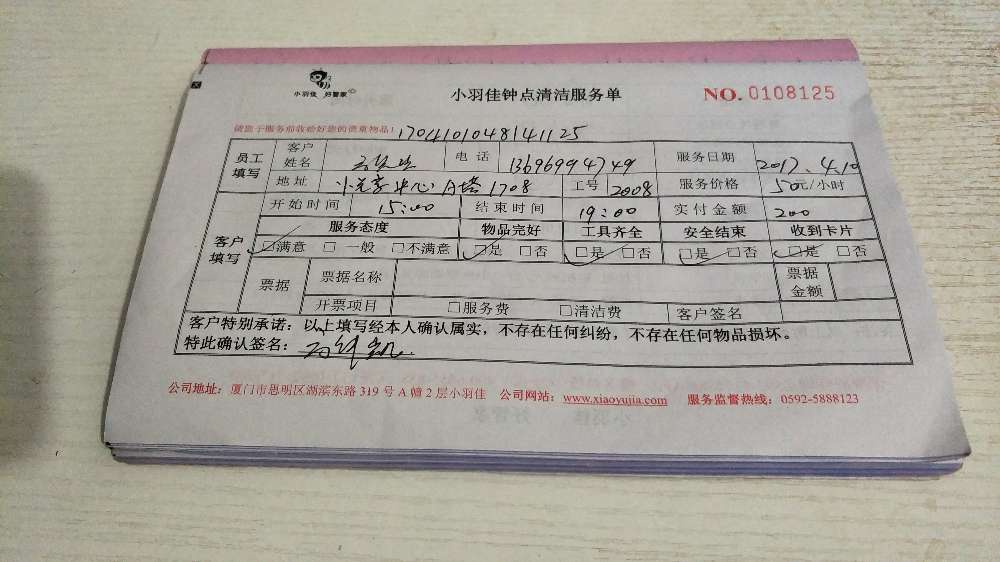 小羽佳 好管家
小羽佳钟点清洁服务单
NO. 0108125
请您于服务前收拾好您的贵重物品! 1704101048141125
员工填写 客户姓名 电话 13696994749 服务日期 2017.4.10
地址 中心A塔1708 工号 2008 服务价格 50元/小时
开始时间 15:00 结束时间 19:00 实付金额 200
客户填写 服务态度 物品完好 工具齐全 安全结束 收到卡片
☑满意 □一般 □不满意 ☑是 □否 ☑是 □否 ☑是 □否 ☑是 □否
票据 票据名称 票据金额
开票项目 □服务费 □清洁费 客户签名
客户特别承诺：以上填写经本人确认属实，不存在任何纠纷，不存在任何物品损坏。
特此确认签名：
公司地址：厦门市思明区湖滨东路 319 号 A 幢 2 层小羽佳 公司网站：www.xiaoyujia.com 服务监督热线：0592-5888123